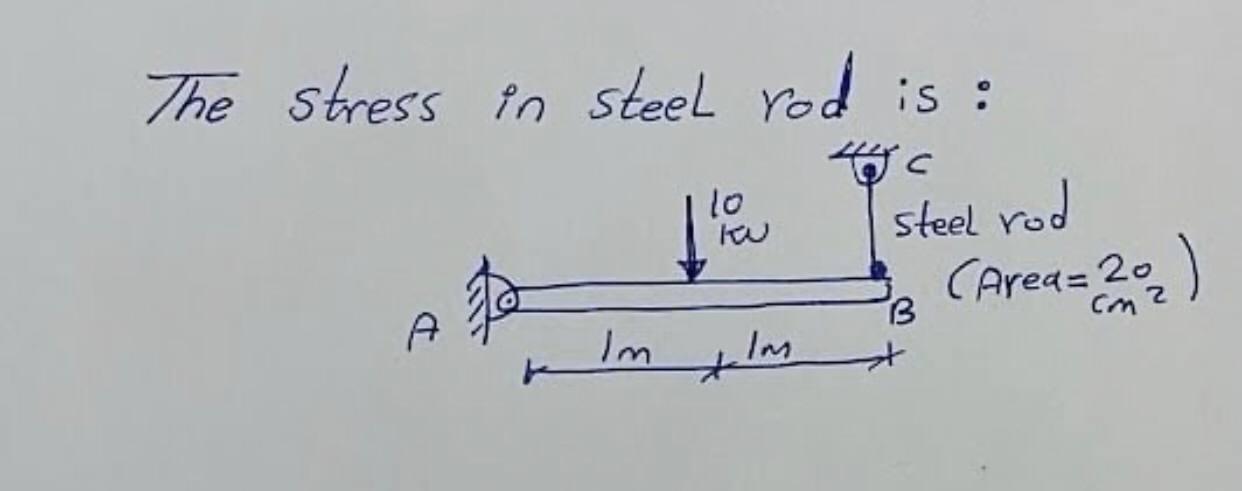 The stress in steel rod is :
C
10
KN
steel rod
(Area = 20
cm²)
A
B
1m
1m